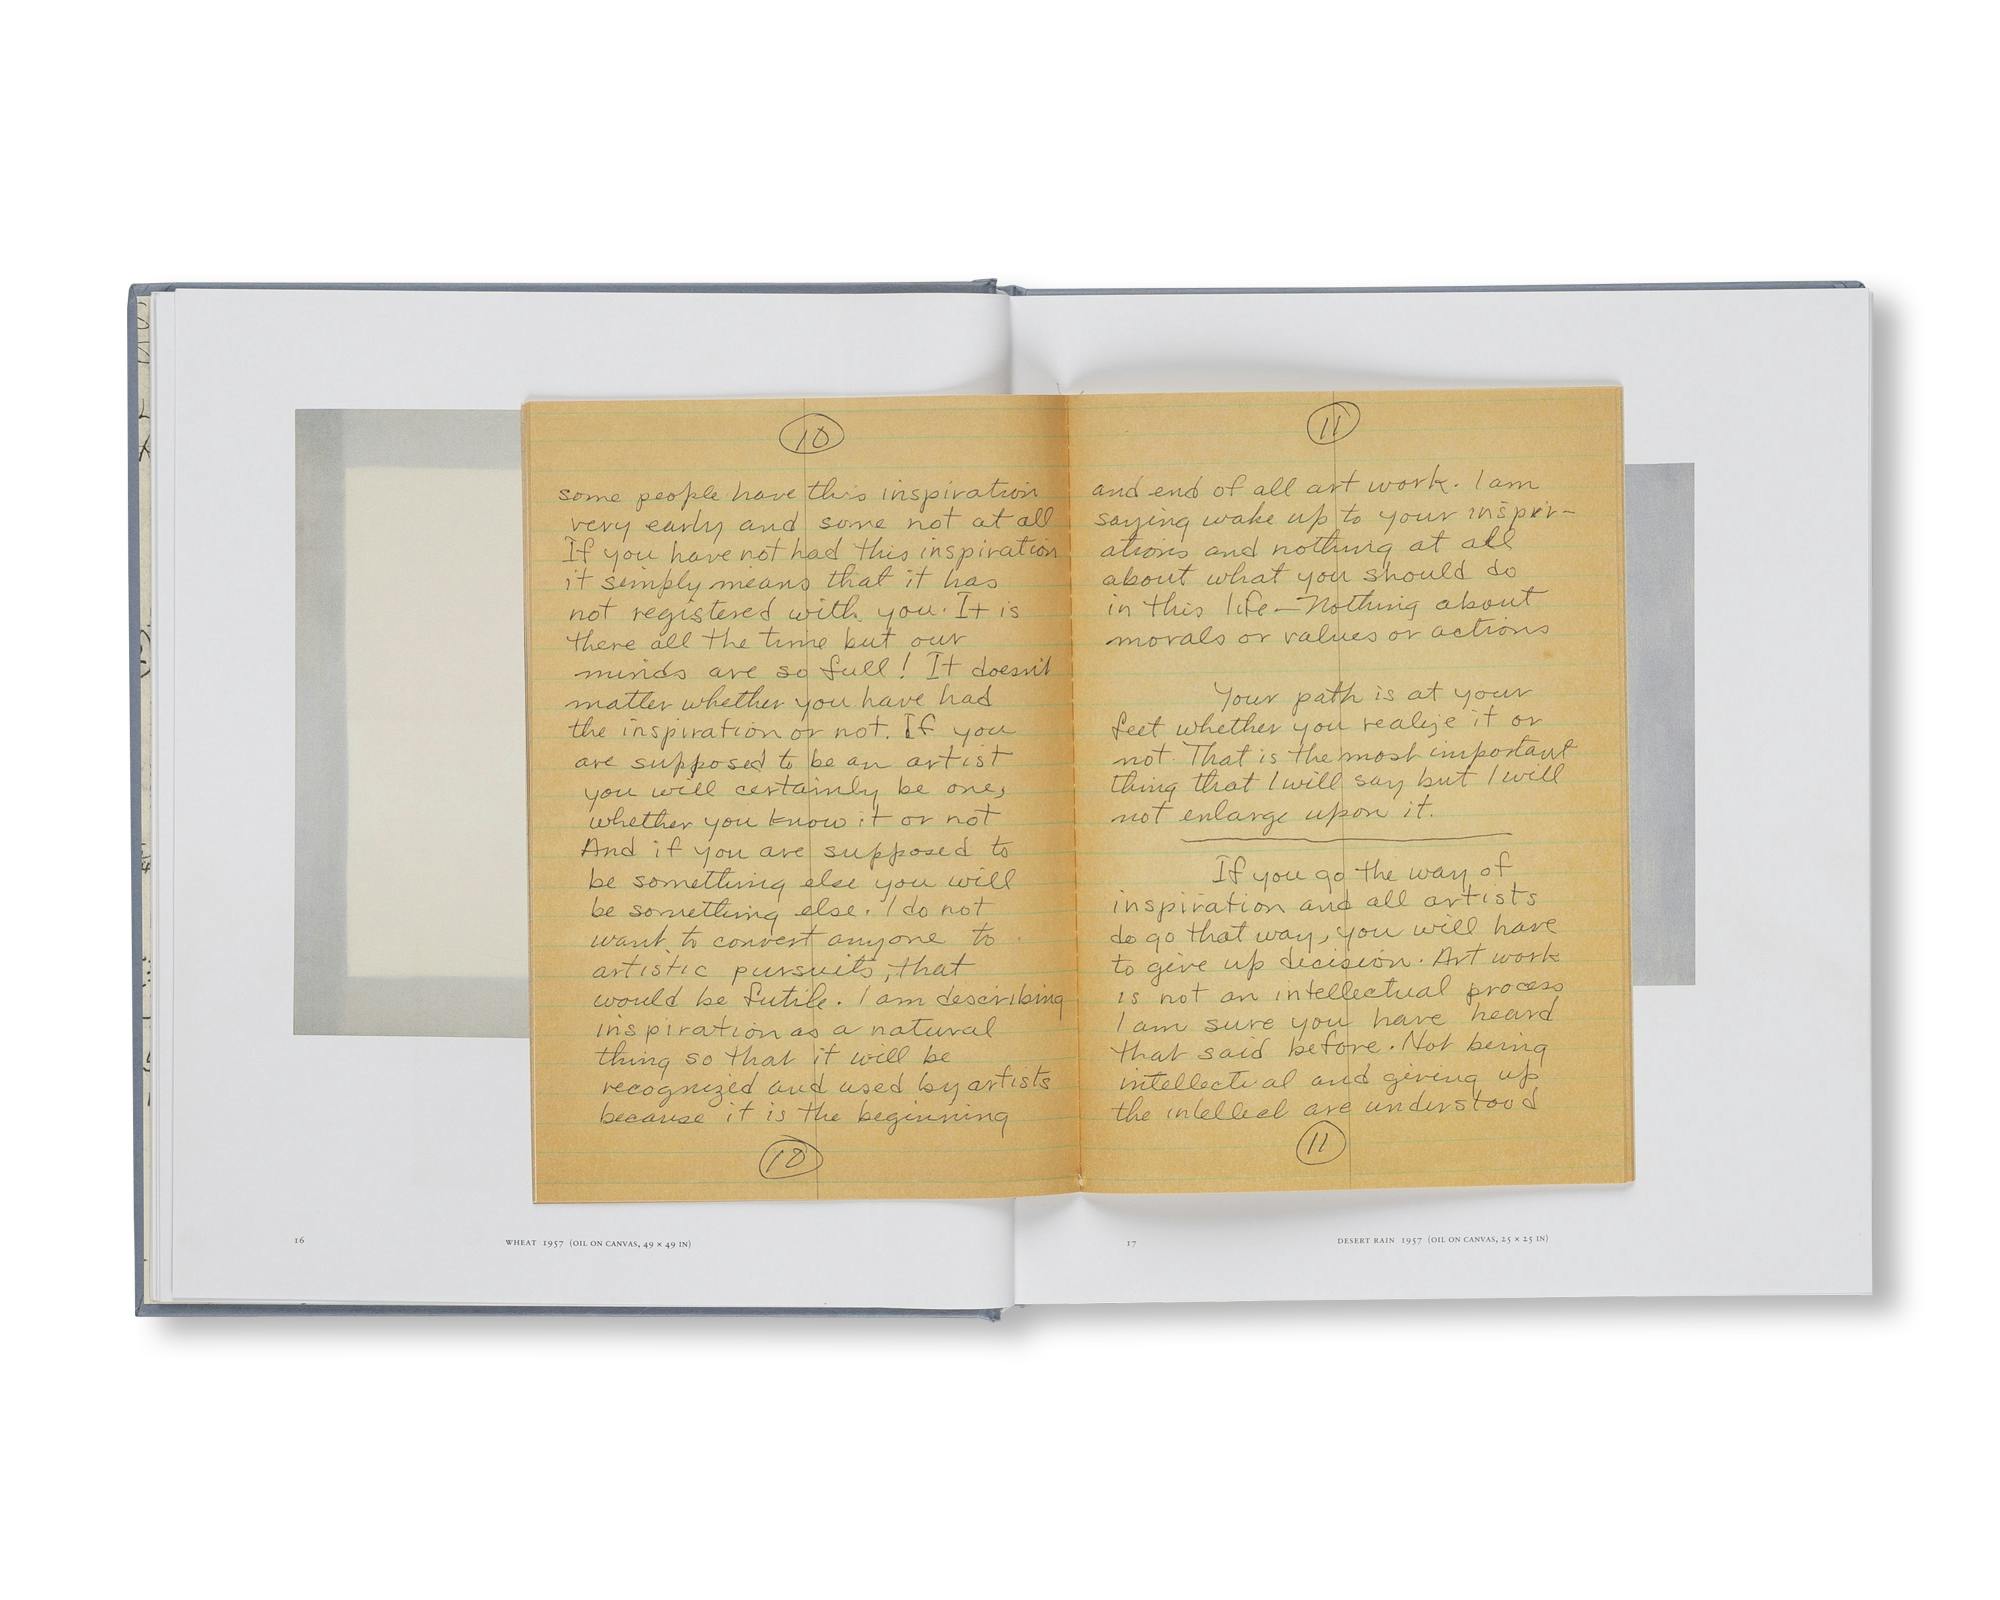 10
some people have this inspiration
very early and some not at all
If you have not had this inspiration
it simply means that it has
not registered with you. It is
there all the time but our
minds are so full! It doesn't
matter whether you have had
the inspiration or not. If you
are supposed to be an artist
you will certainly be one,
whether you know it or not
And if you are supposed to
be something else you will
be something else. I do not
want to convert anyone to
artistic pursuits, that
would be futile. I am describing
inspiration as a natural
thing so that it will be
recognized and used by artists
because it is the beginning
10
16
WHEAT 1957 (OIL ON CANVAS, 49 × 49 IN)
11
and end of all art work. I am
saying wake up to your inspir-
ations and nothing at all
about what you should do
in this life—Nothing about
morals or values or actions
Your path is at your
feet whether you realize it or
not. That is the most important
thing that I will say but I will
not enlarge upon it.
If you go the way of
inspiration and all artists
do go that way, you will have
to give up decision. Art work
is not an intellectual process
I am sure you have heard
that said before. Not being
intellectual and giving up
the intellect are understood
11
17
DESERT RAIN 1957 (OIL ON CANVAS, 25 × 25 IN)